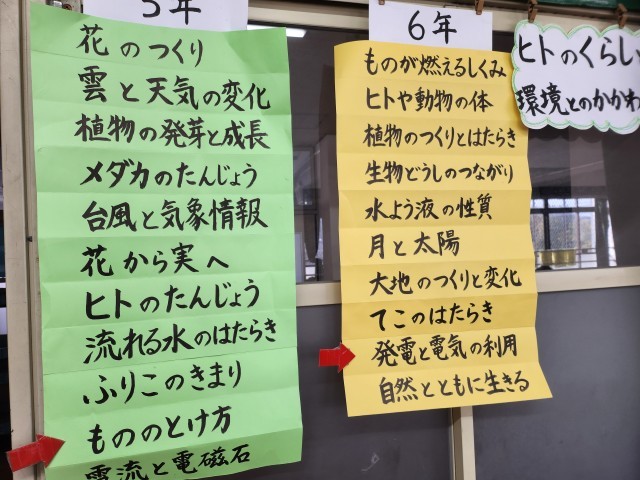 5年
花のつくり
雲と天気の変化
植物の発芽と成長
メダカのたんじょう
台風と気象情報
花から実へ
ヒトのたんじょう
流れる水のはたらき
ふりこのきまり
もののとけ方
電流と電磁石
6年
ものが燃えるしくみ
ヒトや動物の体
植物のつくりとはたらき
生物どうしのつながり
水よう液の性質
月と太陽
大地のつくりと変化
てこのはたらき
発電と電気の利用
自然とともに生きる
ヒトのくらし
環境とのかかわ